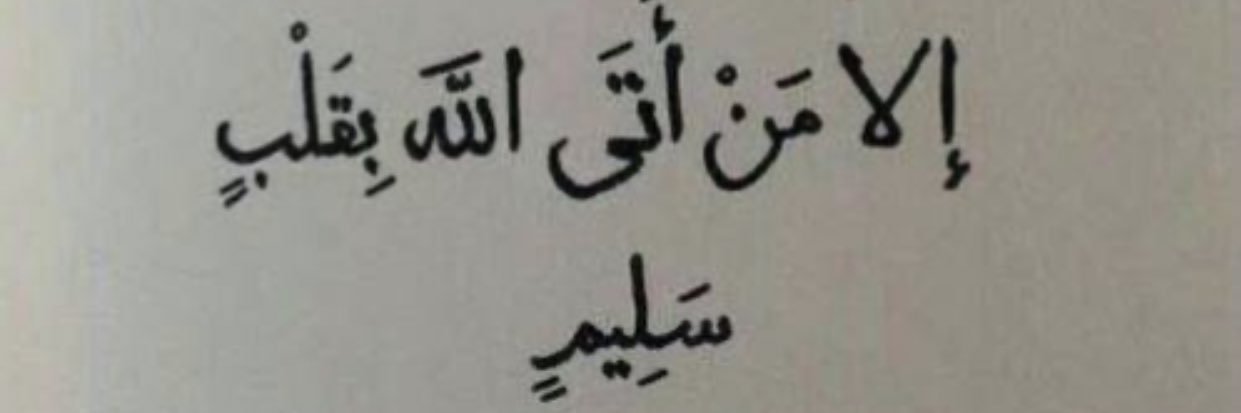 إلا مَنْ أَتَى اللَّهَ بِقَلْبٍ
سَلِيمٍ